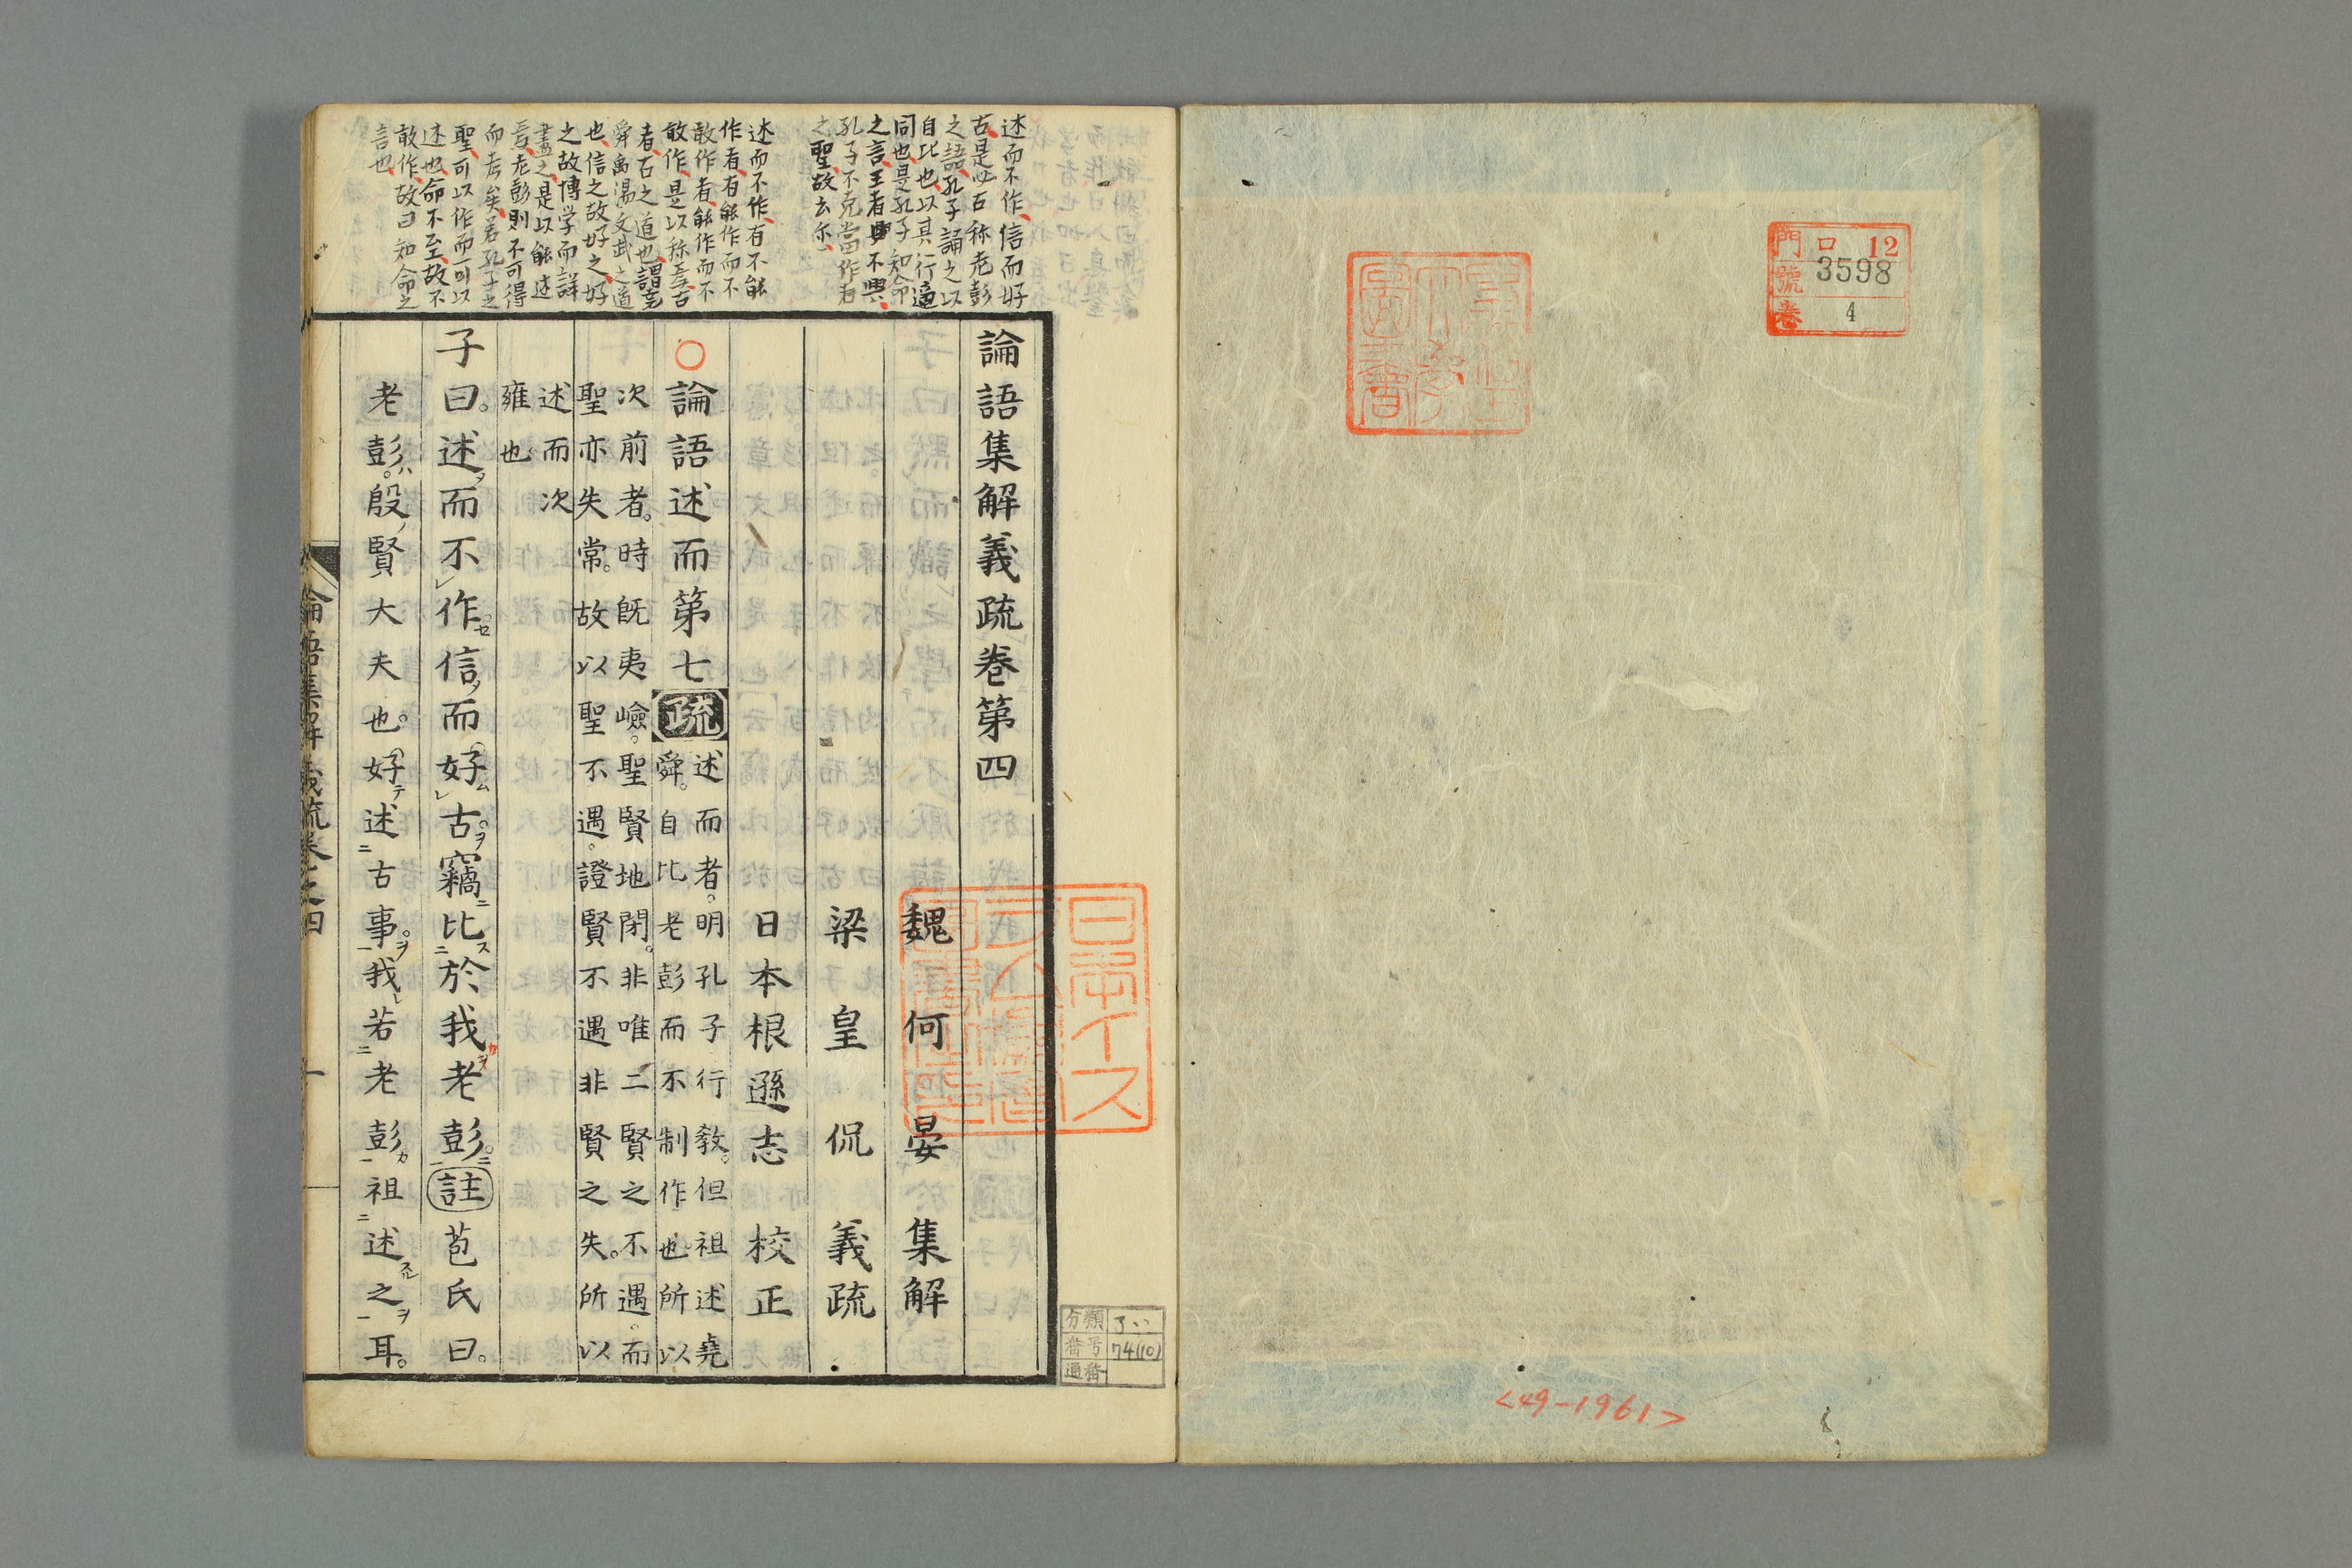 門 口 12
號 3598
卷 4
<49-1961>
分類
番号 74(10)
通番
述而不作、信而好
古、是必古称老彭
之語、孔子誦之以
自比也、以其行適
同也、是孔子知命
之言、王者不興、
孔子不克當作者
之聖、故云尓、
述而不作、有不能
作者、有能作而不
敢作者、能作而不
敢作、是以称焉、古
者、古之道也、謂堯
舜禹湯文武之道
也、信之故好之、好
之故博学而詳
盡之、是以能述
焉、老彭則不可得
而考矣、若孔子之
聖、可以作而可以
述也、命不至、故不
敢作、故曰知命之
言也、
論語集解義疏卷第四
魏 何 晏 集解
梁 皇 侃 義疏
日本根遜志 校正
○論語述而第七 疏 述而者。明孔子行敎。但祖述堯
舜。自比老彭而不制作也所以
次前者。時旣夷嶮。聖賢地閉。非唯二賢之不遇。而
聖亦失常。故以聖不遇。證賢不遇非賢之失。所以
述而次
雍也
子曰。述而不作信而好古竊比於我老彭 註 苞氏曰。
老彭。殷賢大夫也。好述古事。我若老彭祖述之耳。
論語集解義疏卷之四 一